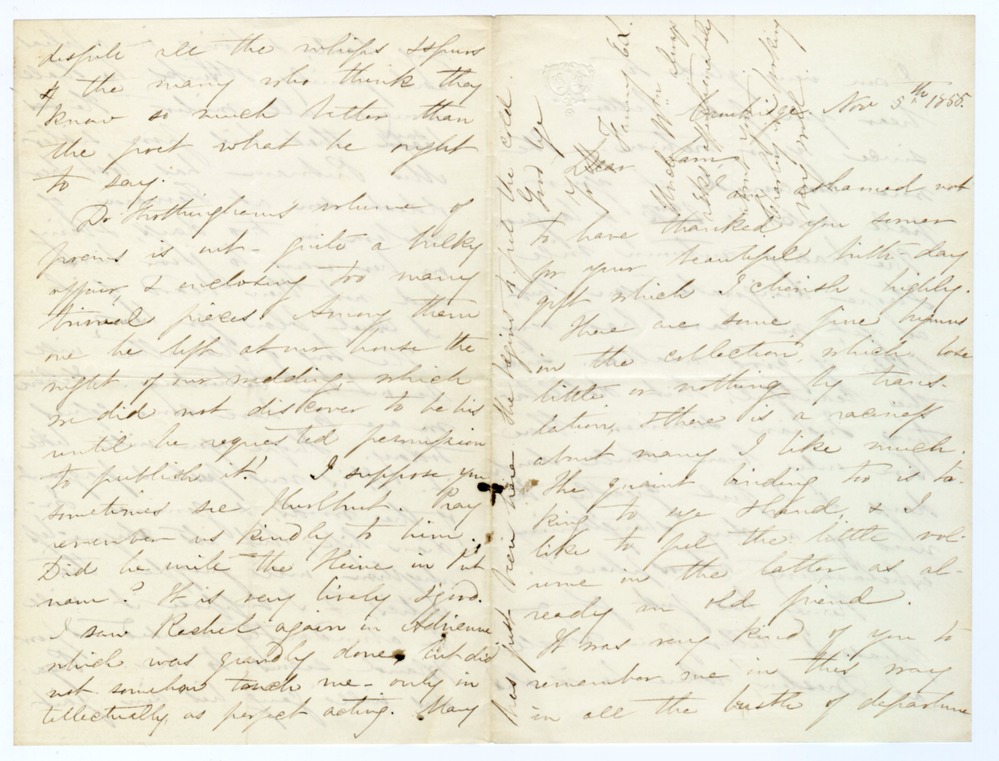 Cambridge Nov 5th 1855.
Dear Sam
I am ashamed not
to have thanked you sooner
for your beautiful birth-day
gift which I cherish highly.
There are some fine hymns
in the collection, which lose
little or nothing by trans-
lation, & there is a raciness
about many I like much.
The quaint binding too is ta-
king to eye & hand, & I
like to feel the little vol-
ume in the latter as al-
ready an old friend.
It was very kind of you to
remember me in this way
in all the bustle of departure
despite all the whips & spurs
of the many who think they
know so much better than
the poet what he ought
to say.
Dr Frothingham's volume of
poems is out - quite a bulky
affair, & enclosing too many
trivial pieces. Among them
one he left at our house the
night of our wedding which
we did not discover to be his
until he requested permission
to publish it! I suppose you
sometimes see Hurlbut. Pray
remember us kindly to him.
Did he write the Heine in Put
nam? It is very lively & good.
I saw Rachel again in Adrienne
which was grandly done, but did
not somehow touch me - only in
tellectually, as perfect acting. Mary
has just been here she begins to feel the cold
God bye
Fanny E.L.